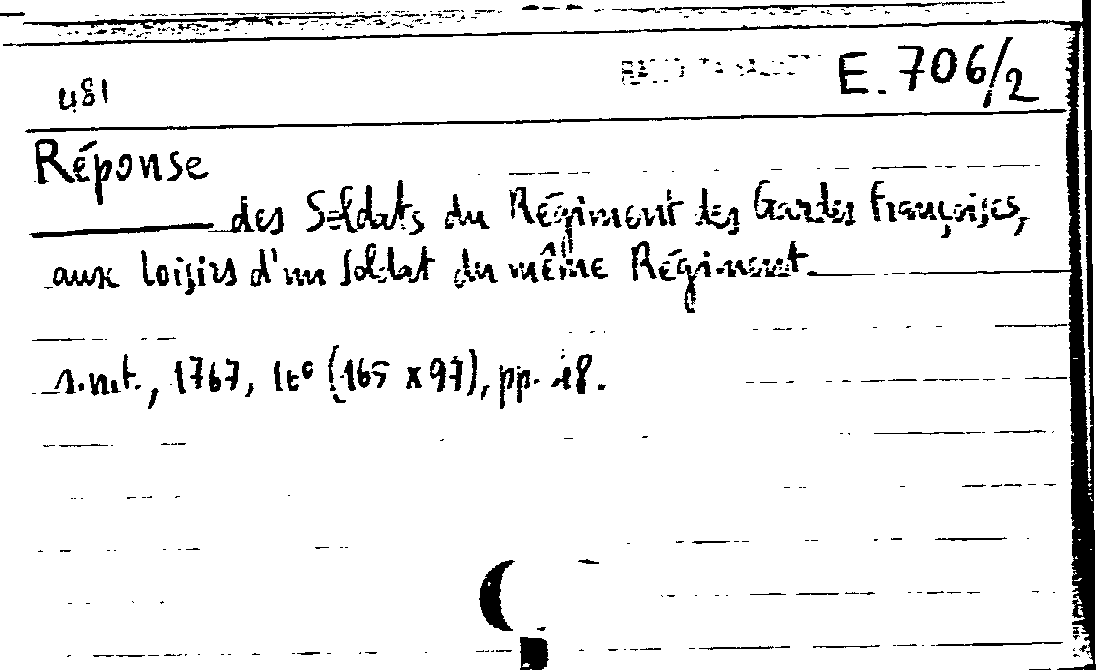 481
E. 706/2
Réponse
des Soldats du Régiment des Gardes françoises,
aux loisirs d'un soldat du même Régiment.
s.n.t., 1767, (165 x 97), pp. 18.